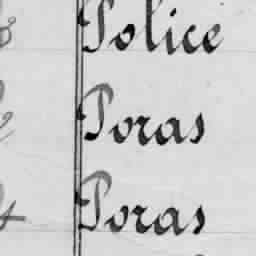 Police
Poras
Poras